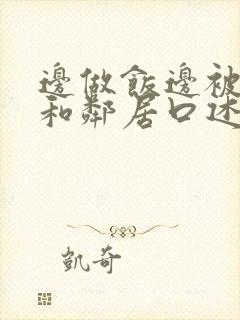 邊做飯邊被
和鄰居口述
凱奇